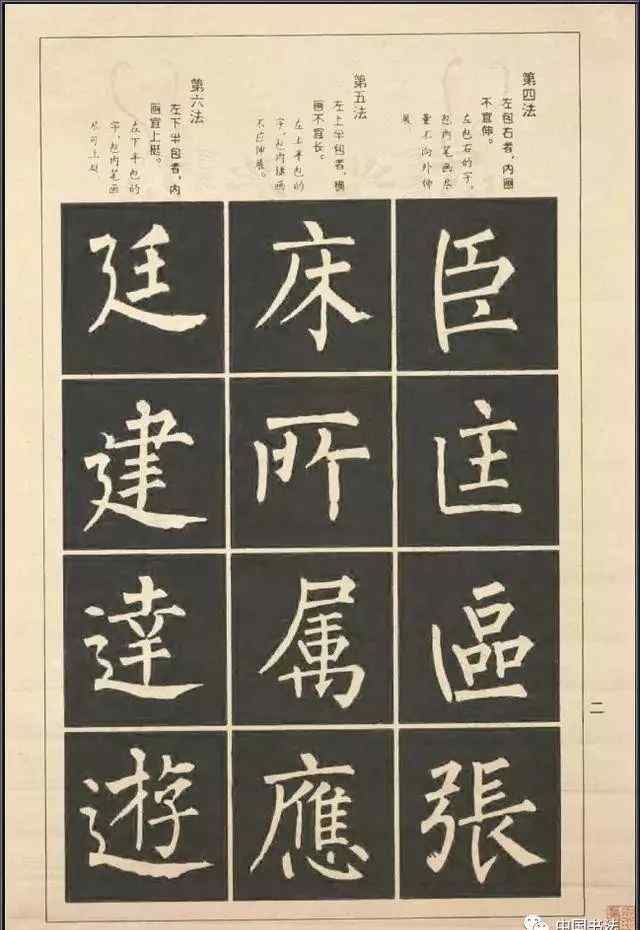 第四法
左包右者，内画
不宜伸。
左包右的字，
包内笔画尽
量不向外伸
展。
臣
匡
區
張
第五法
左上半包者，横
画不宜长。
左上半包的
字，包内横画
不应伸展。
床
所
属
應
第六法
左下半包者，内
画宜上挺。
左下半包的
字，包内笔画
尽可上挺
廷
建
達
遊
二
中国书法